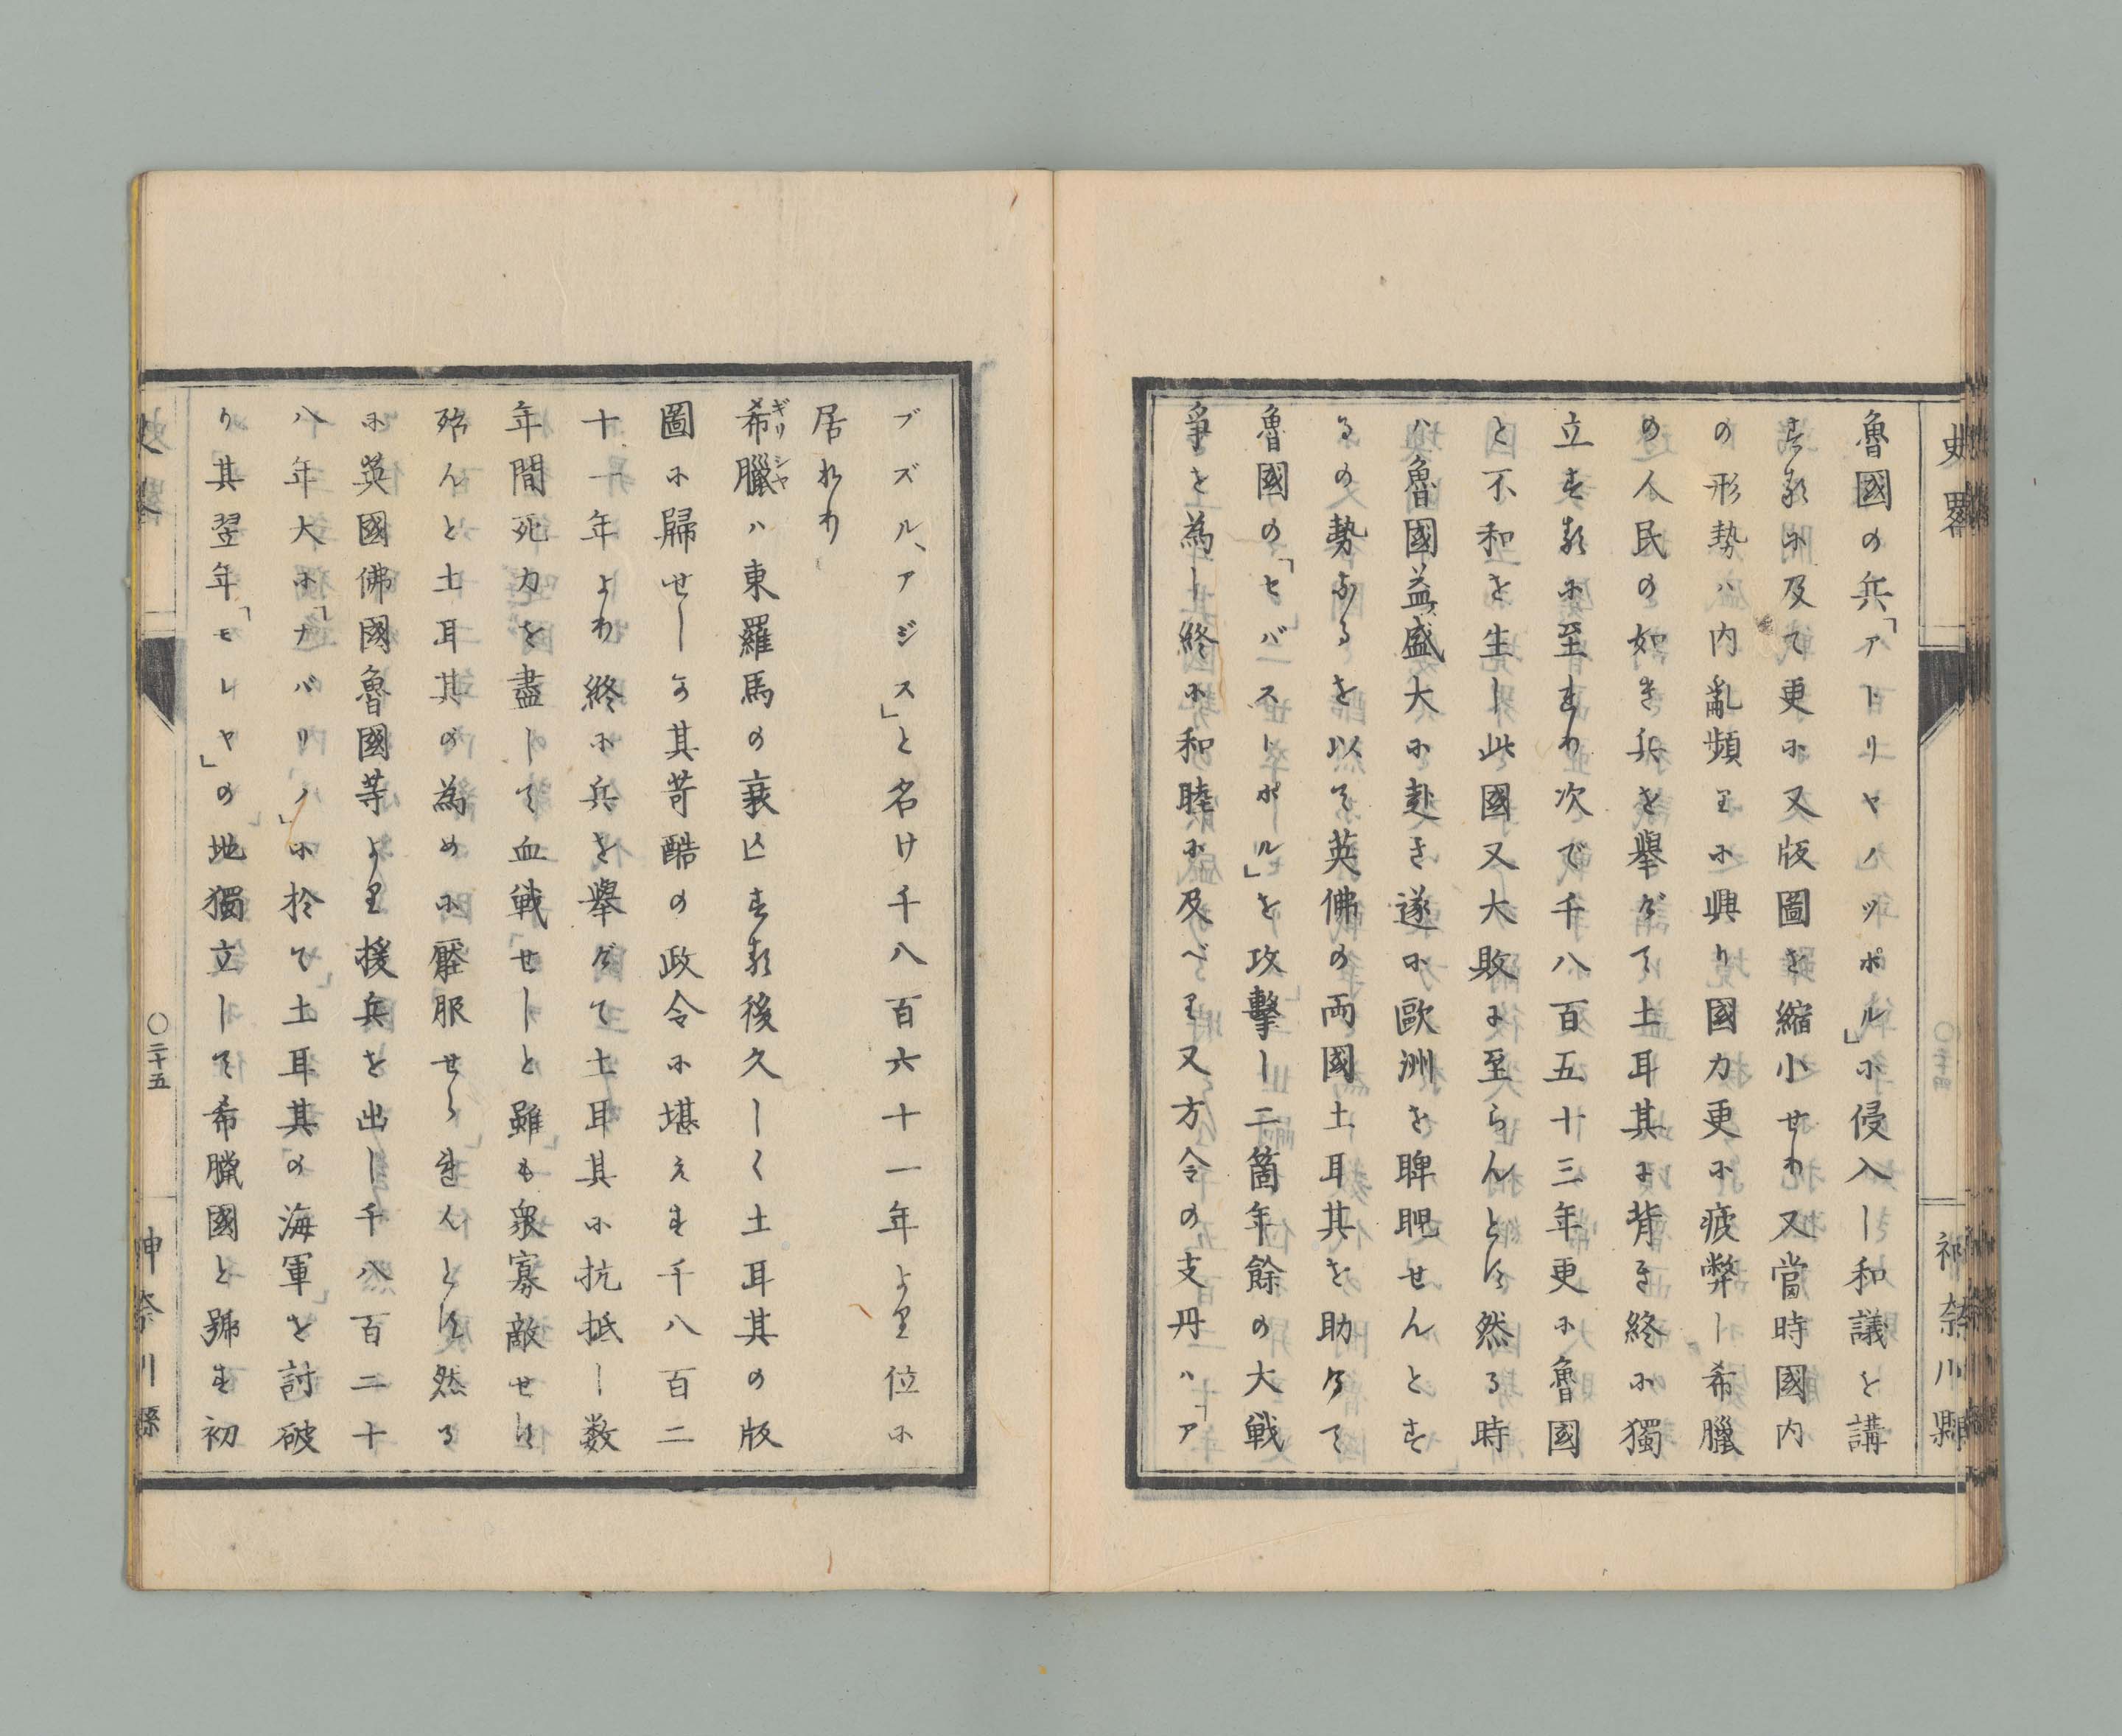 史畧
神奈川縣
魯國の兵「アドリヤノッポル」に侵入し和議を講
する に及て更に又版圖を縮小せり又當時國内
の形勢ハ内亂頻りに興り國力更に疲弊し希臘
の人民の如き兵を擧げて土耳其に背き終に獨
立する に至れり次で千八百五十三年更に魯國
と不和を生し此國又大敗に至らんとす然る時
ハ魯國益盛大に赴き遂に歐洲を睥睨せんとす
るの勢なるを以て英佛の両國土耳其を助けて
魯國の「セバストポール」を攻擊し二箇年餘の大戦
爭を為し終に和睦に及べり又方今の支丹ハア
ブズル、アジス」と名け千八百六十一年より位に
居れり
希臘ハ東羅馬の衰亡する 後久しく土耳其の版
ギリシヤ
圖に歸せしが其苛酷の政令に堪えず千八百二
十一年より終に兵を擧げて土耳其に抗抵し数
年間死力を盡して血戦せしと雖も衆寡敵せす
殆んと土耳其の為めに壓服せられんとす然る
に英國佛國魯國等より援兵を出し千八百二十
八年大に「ナバリノ」に於て土耳其の海軍を討破
り其翌年「モレヤ」の地獨立して希臘國と號す初
史畧
〇二十五
神奈川縣